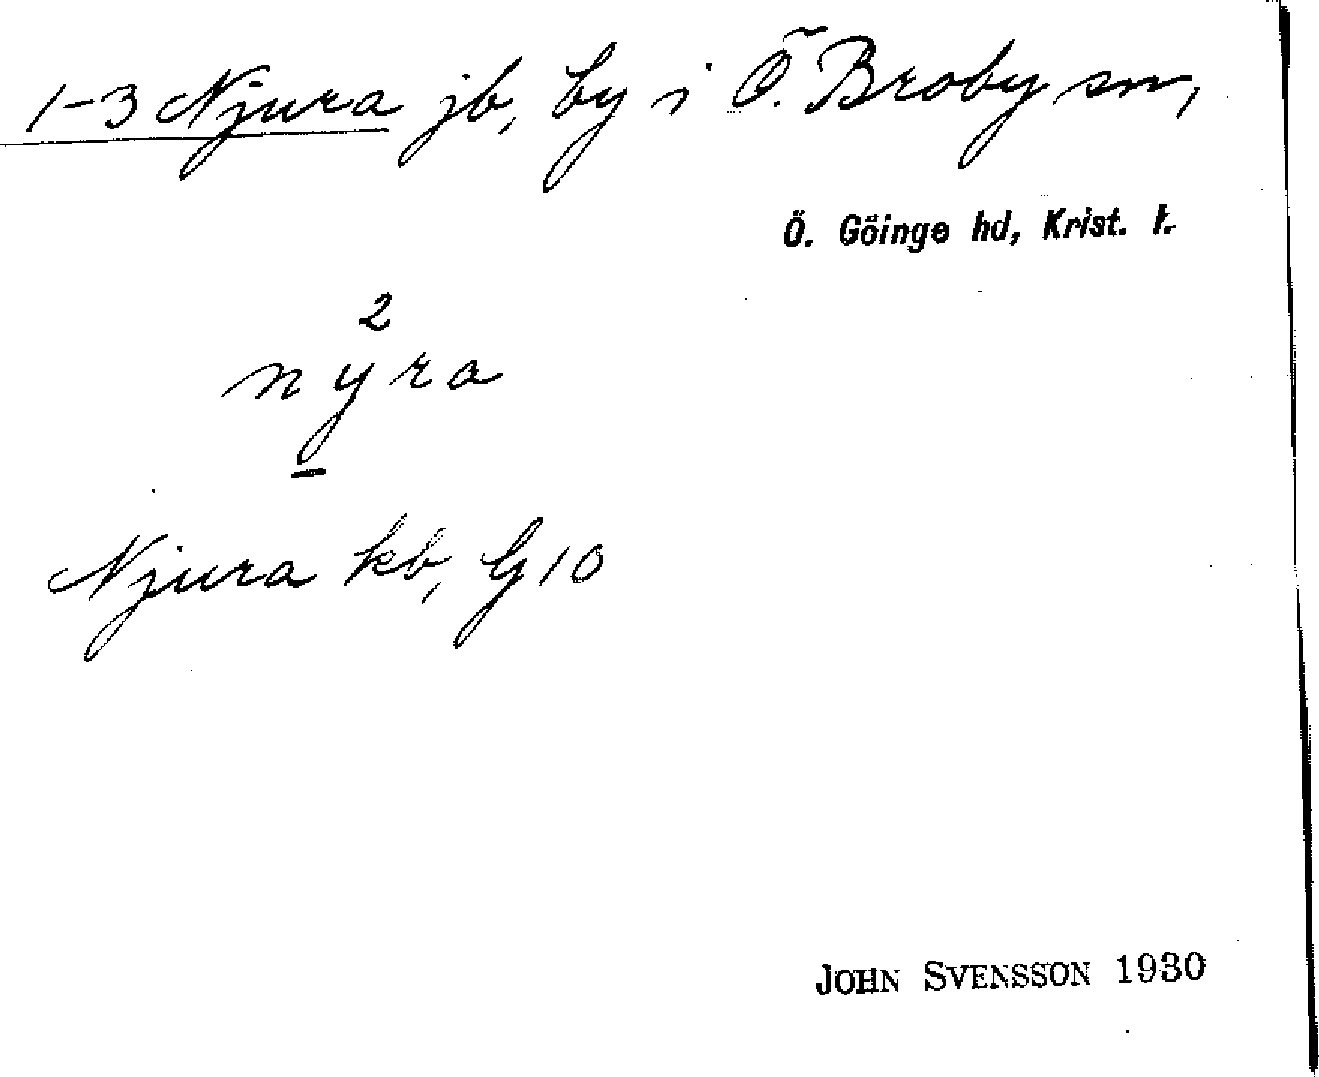 1-3 Njura jb, by i Ö. Broby sn,
Ö. Göinge hd, Krist. l.
2
nyra
Njura kb, G10
JOHN SVENSSON 1930